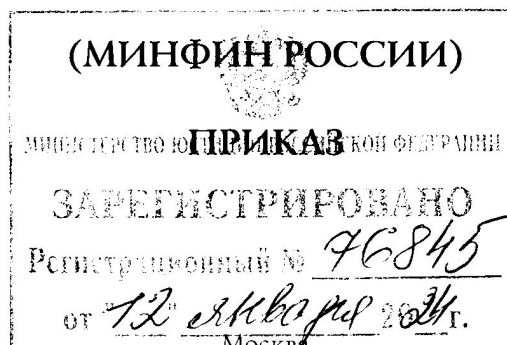 (МИНФИН РОССИИ)
МИНИСТЕРСТВО ЮСТИЦИИ РОССИЙСКОЙ ФЕДЕРАЦИИ
ПРИКАЗ
ЗАРЕГИСТРИРОВАНО
Регистрационный № 76845
от "12" января 2024г.
Москва